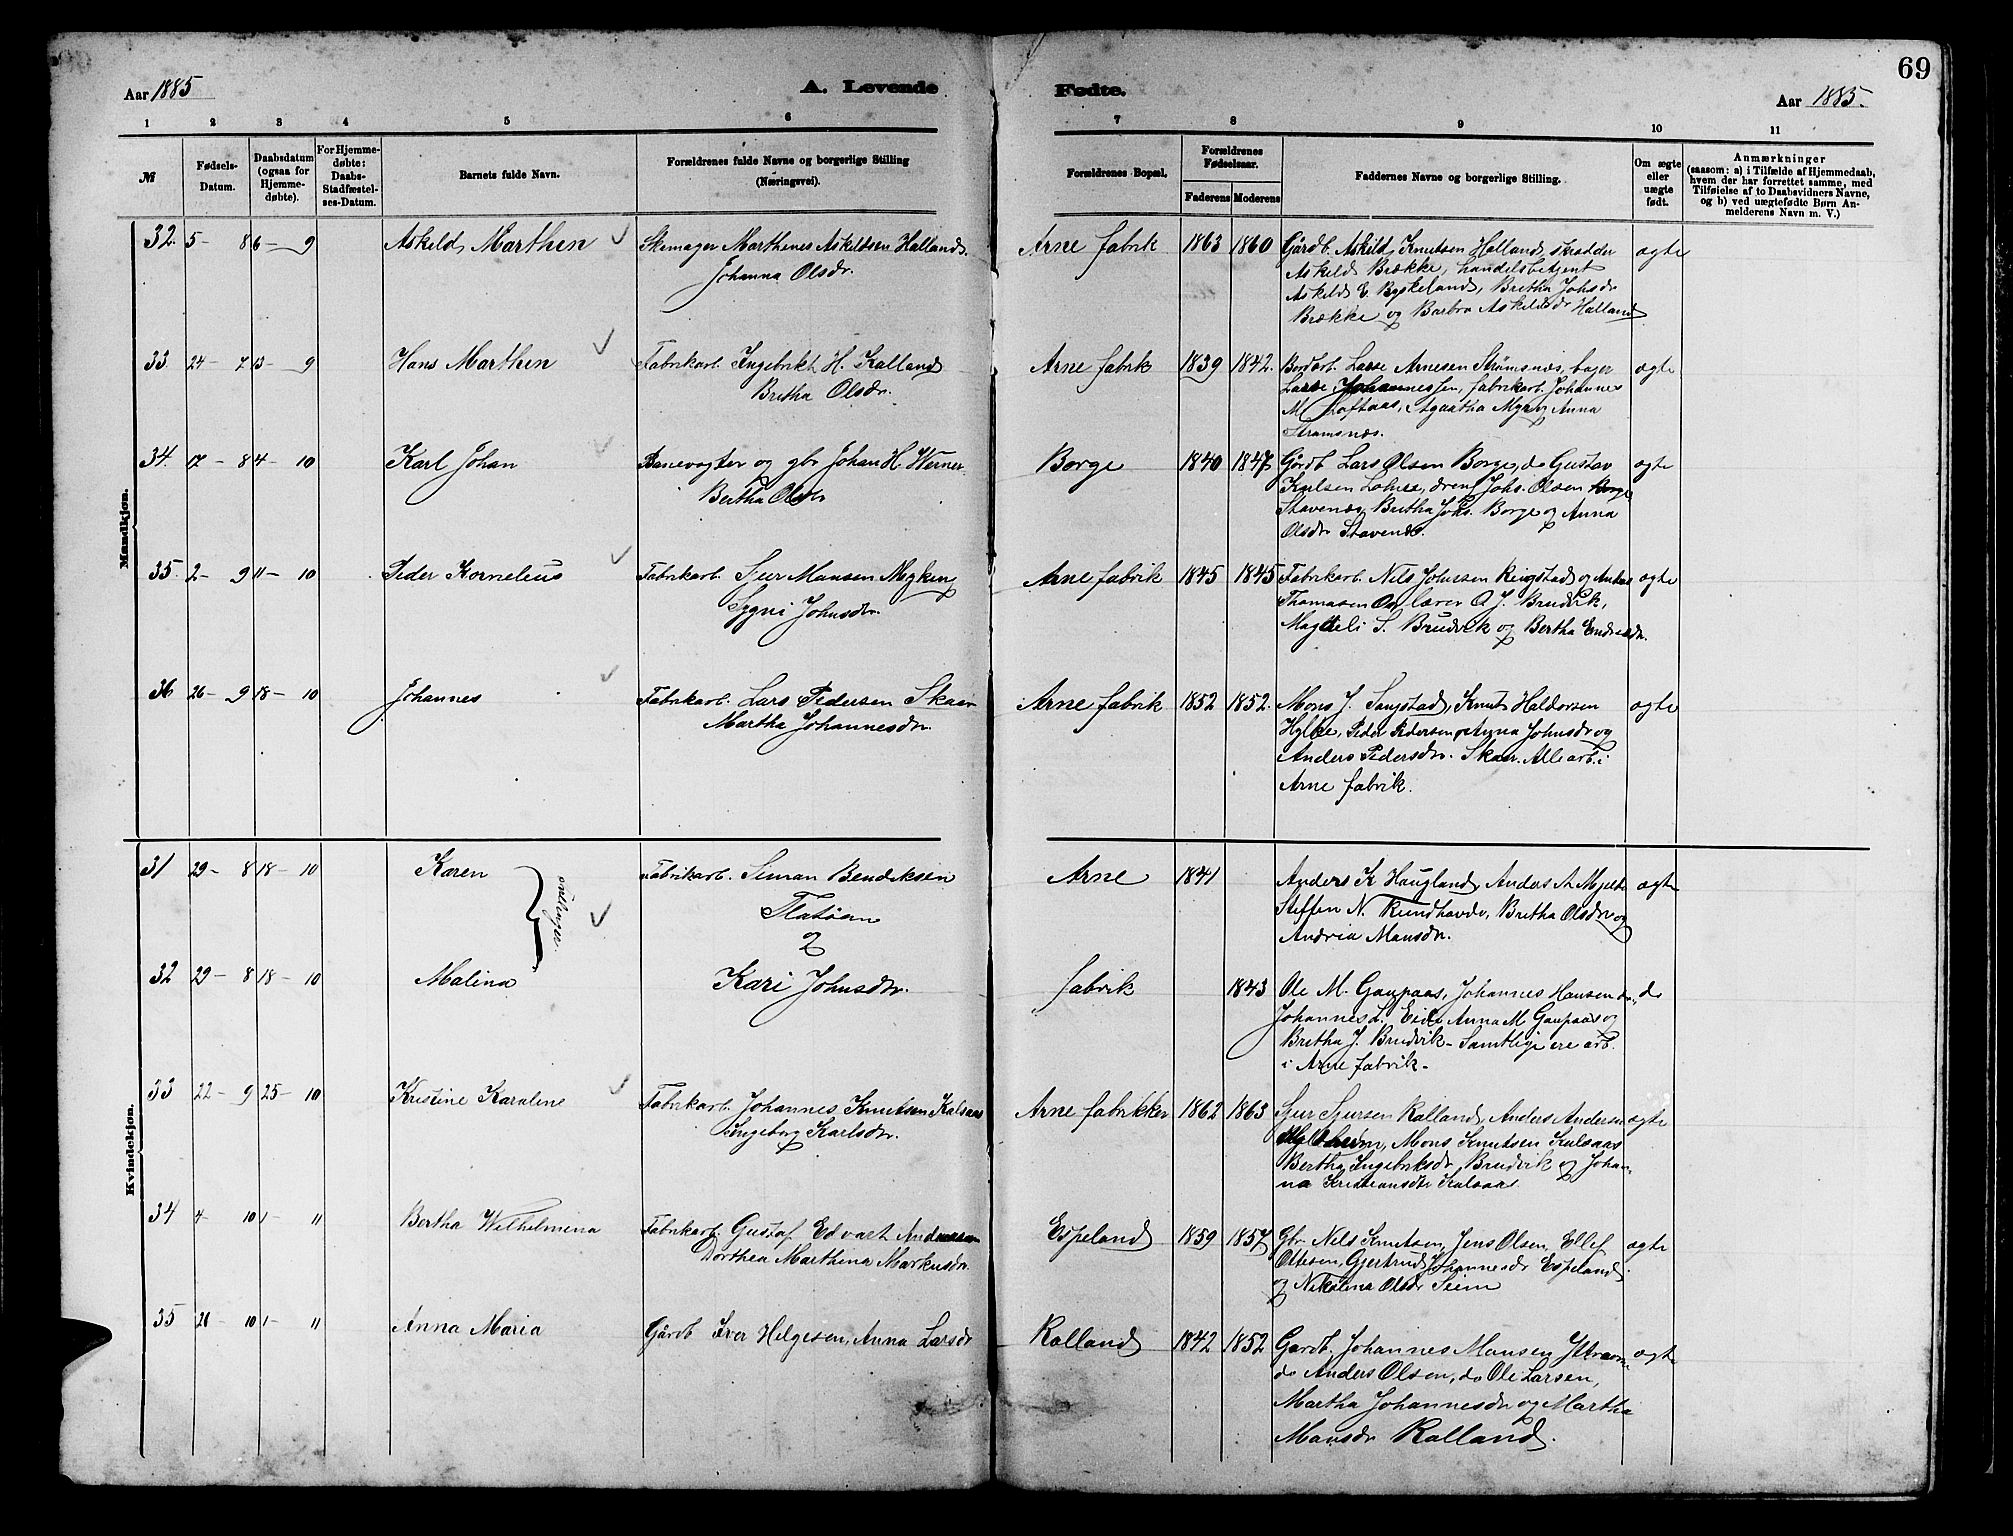 69
Aar 1885
A. Levende
Fødte.
Aar 1885.
1 2 3 4 5 6 7 8 9 10 11
№
Fødsels-
Datum.
Daabsdatum
(ogsaa for
Hjemme-
døbte).
For Hjemme-
døbte:
Daabs-
Stadfæstel-
ses-Datum.
Barnets fulde Navn.
Forældrenes fulde Navne og borgerlige Stilling
(Næringsvei).
Forældrenes Bopæl.
Forældrenes
Fødselsaar.
Faderens Moderens
Faddernes Navne og borgerlige Stilling.
Om ægte
eller
uægte
født.
Anmærkninger
(saasom: a) i Tilfælde af Hjemmedaab,
hvem der har forrettet samme, med
Tilføielse af to Daabsvidners Navne,
og b) ved uægtefødte Børn An-
melderens Navn m. V.)
Mandkjøn.
32. 5 – 8 6 – 9 Askeld, Marthen
Skomager Marthenes Askeldsen Halland
Johanna Olsdr.
Arne fabrik 1863 1860
Gårdb. Askild Knutsen Halland, skrædder
Askild Brække, handelsbetjent
Askild E. Byskeland, Bretha Johsdr
Brække og Barbra Askildsdr Halland
ægte
33. 24 – 7 13 – 9 Hans Marthen
Fabrikarb. Ingebrikt H. Kalland
Bretha Olsdr.
Arne fabrik 1839 1842.
Bordarb. Lasse Arnesen Strømsnæs, bager
Lasse Johannessen, fabrikarb. Johannes
M. Loftaas, Agaatha Myr og Anna
Strømsnæs.
ægte
34. 17 – 8 4 – 10 Karl Johan
Banevogter og gbr Johan H. Werner
Bertha Olsdr
Borge 1840 1847
Gårdb. Lars Olsen Borge, do Gustav
Knlsen Lohne, dreng Johs. Olsen Borge
Stavenæs, Bertha Johs. Borge og Anna
Olsdr Stavenæs.
ægte
35. 2 – 9 11 – 10 Peder Kornelius
Fabrikarb. Sjur Mansen Myking
Sygni Johnsdr.
Arne fabrik 1845 1845
Fabrikarb. Nils Johnssen Ringstad og Anders
Thomasen Os, lærer O. J. Brudvik,
Magdeli S. Brudvik og Bertha Endresdr.
ægte
36 26 – 9 18 – 10 Johannes
Fabrikarb. Lars Pedersen Skaar
Martha Johannesdr.
Arne fabrik 1852 1852.
Mons J. Saugstad, Knut Haldorsen
Hylke, Peder Pedersen, Anna Johnsdr og
Anders Pedersdr. Skaar. Alle arb. i
Arne fabrik.
ægte
Kvindekjøn.
31 29 – 8 18 – 10 Karen
tvillinger
Fabrikarb. Simon Bendiksen
Flatøen
Arne 1841
Anders K Haugland, Anders A. Mjelde
Steffen N. Rundhovde, Bretha Olsdr og
Andrea Mansdr.
ægte
32 29 – 8 18 – 10 Malina
&
Kari Johnsdr.
fabrik 1843
Ole M. Gaupaas, Johannes Hansen do,
Johannes L. Eide, Anna M Gaupaas og
Bretha J. Brudvik – Samtlige ere arb.
i Arne fabrik –
do
33 22 – 9 25 – 10 Kristine Karoline
Fabrikarb. Johannes Knutsen Kalsaas
Ingeborg Karlsdr.
Arne fabrikker 1862 1863
Sjur Sjursen Kalland, Anders Andersen
Mons Knutsen Kalsaas
Bertha Ingebriksdr Brudvik og Johan-
na Kristiansdr Kalsaas
ægte
34 4 – 10 1 – 11 Bertha Wilhelmina
Fabrikarb. Gustaf Edvart Andersen
Dorthea Marthina Markusdr.
Espeland 1859 1857
Gbr. Nils Knutsen, Jens Olsen, Ellef
Ottesen, Gjertrud Johannesdr Espeland
og Nikolina Olsdr Seim
ægte
35 21 – 10 1 – 11 Anna Maria
Gårdb Iver Helgesen, Anna Larsdr
Kalland 1842 1852
Gardb. Johannes Mansen Ytrearne
do Anders Olsen, do Ole Larsen,
Martha Johannesdr og Martha
Mansdr Kalland.
ægte